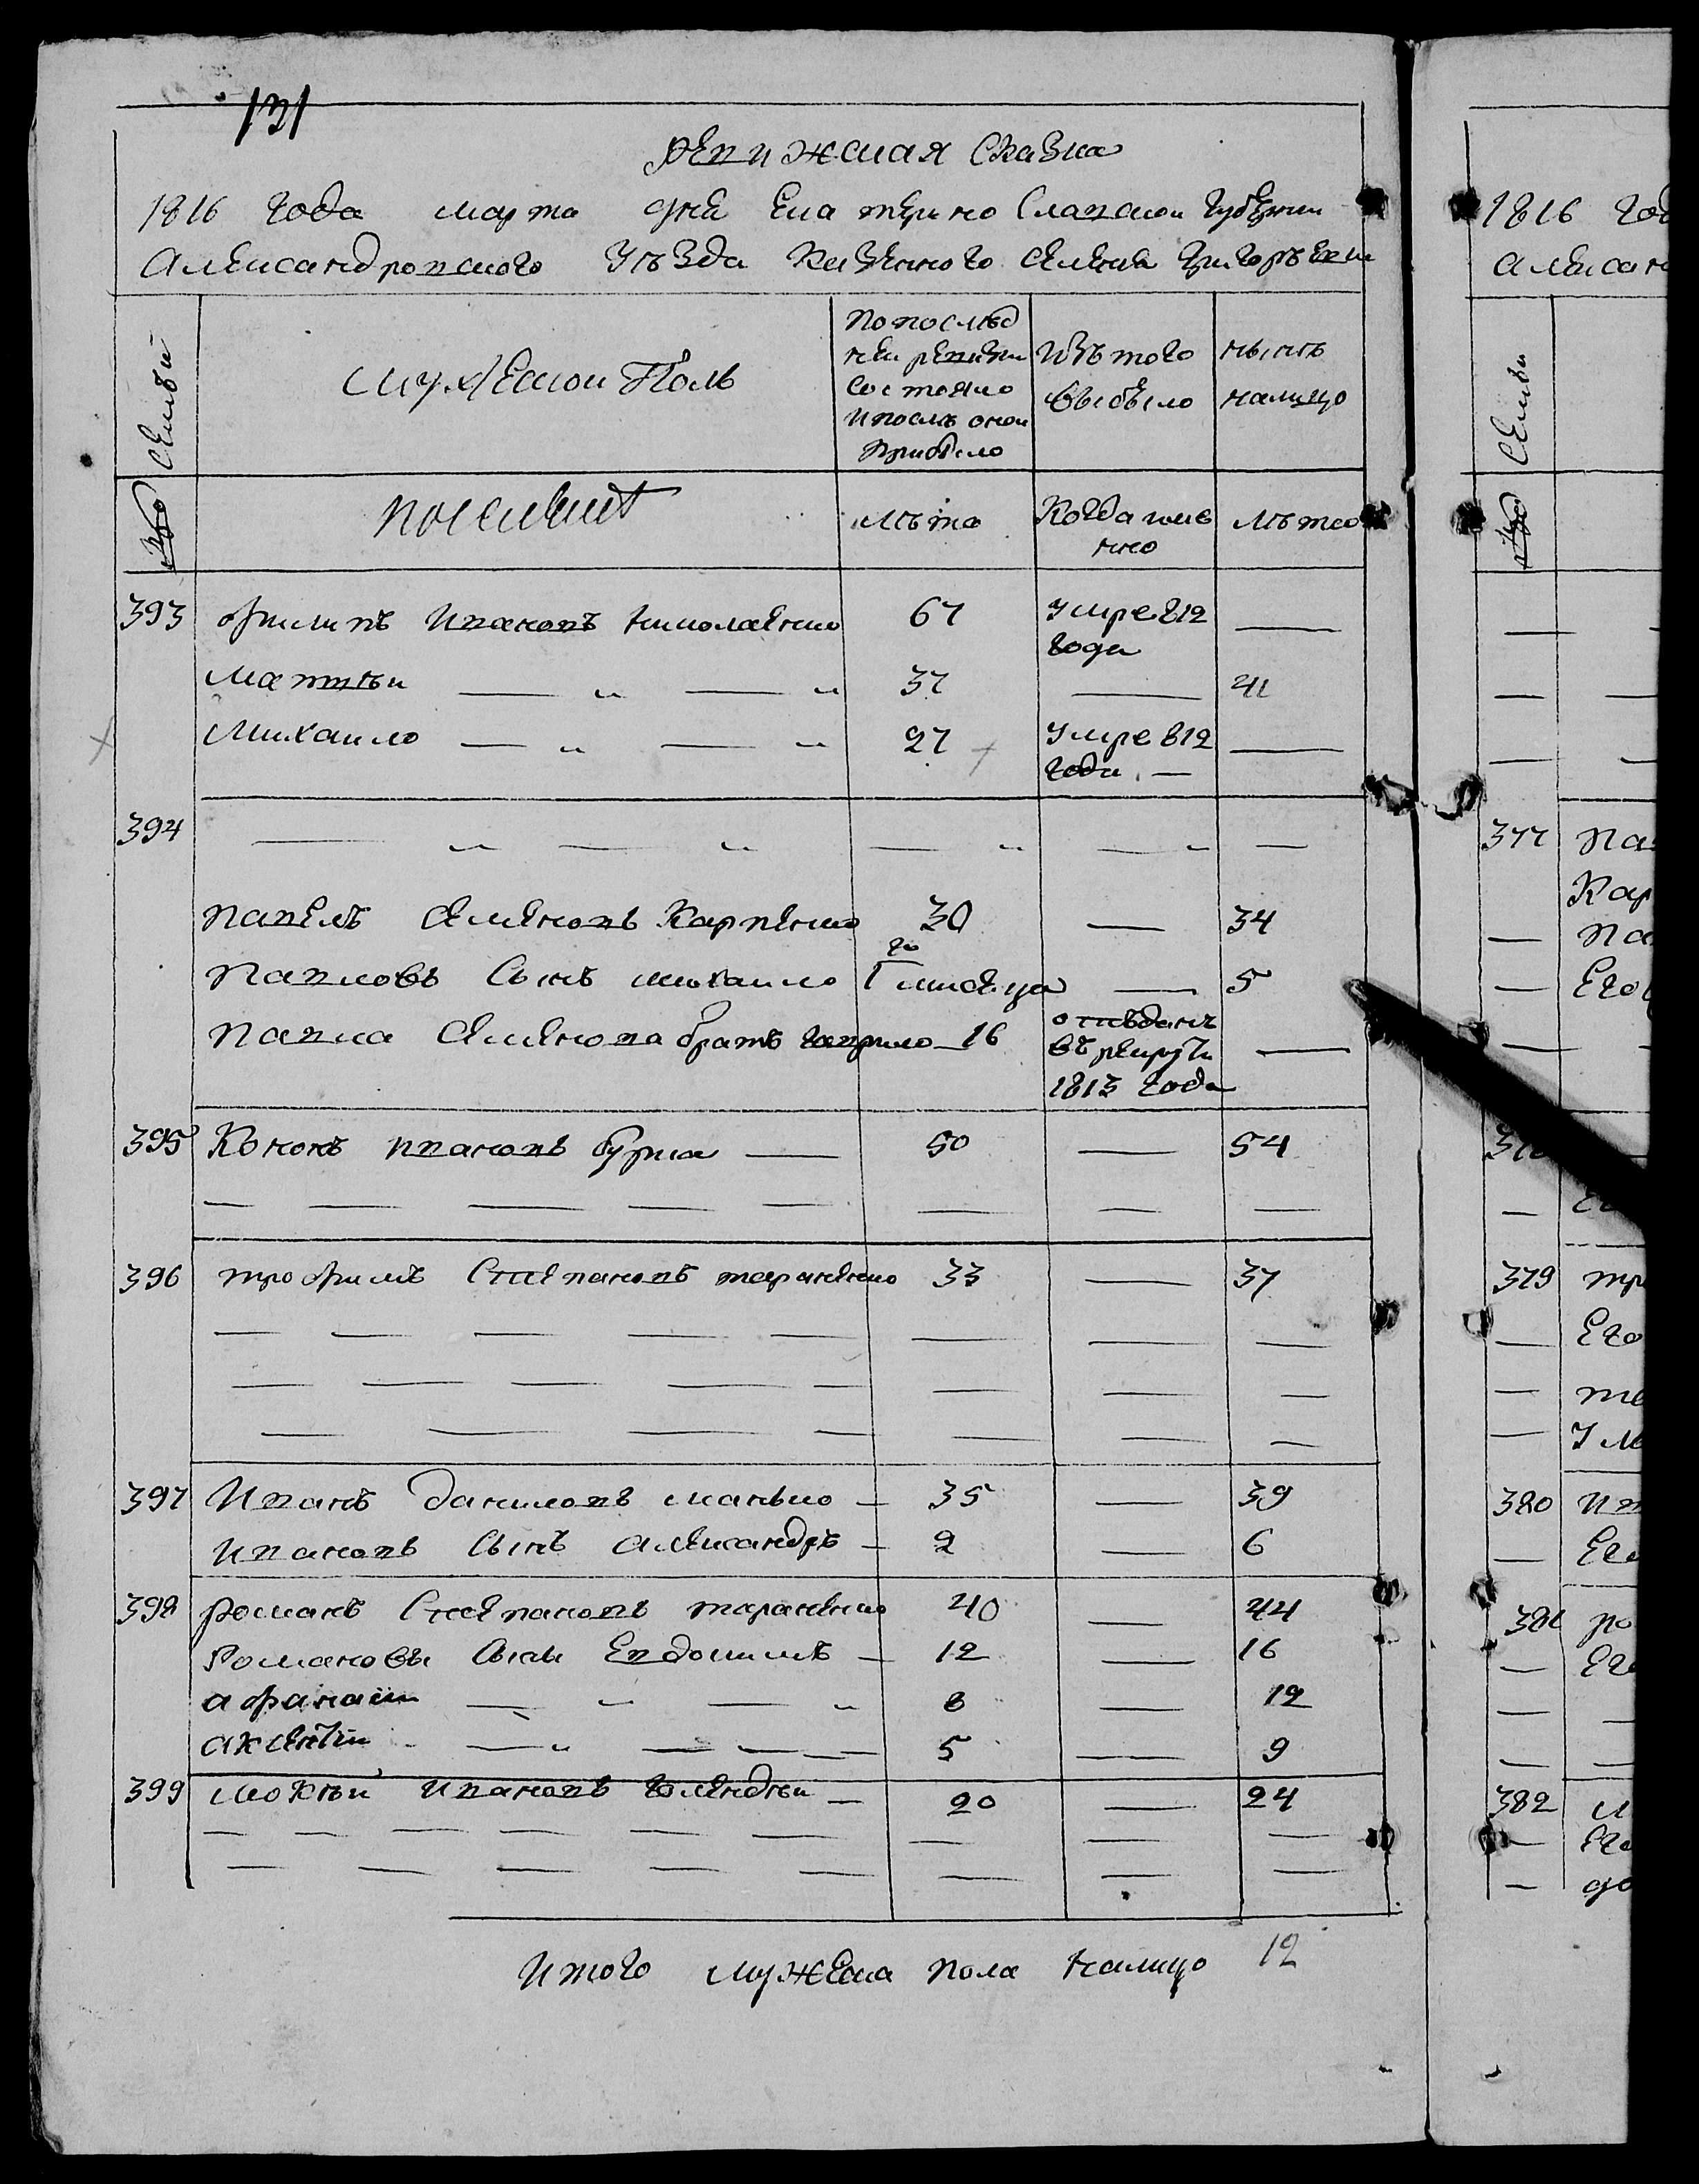 131
Ревижская Сказка
1816 года марта дня Екатерино Славской Губернии
Александровского Уъзда Казенного селения Григорьевки
Семьи
Мужеской Полъ
По послъд
ней ревизии
состояло
и послъ оной
прибыло
Изъ того
выбыло
нынъ
налицо
лъта
Когда имя
нно
лъта
393 Филипъ Ивановъ Николаенко 67 умре 812
года —
Матвъй — „ — „ 37 — 41
Михаило — „ — „ 27 умре 812
года. — —
394 — „ — „ — „ — „ —
Павелъ Семеновъ Карпенко 30 — 34
Павловъ Сынъ михаило 1 мисяца — 5
Павла Семенова братъ гаврило 16 отъданъ
въ рекруты
1813 года —
395 Кононъ ивановъ бурка — 50 — 54
396 трофимъ Степановъ тараненко 33 — 37
397 Иванъ даниловъ манько — 35 — 39
ивановъ Сынъ александръ — 2 — 6
398 романъ Степановъ тараненко 40 — 44
Романовы Сыны Евдокимъ — 12 — 16
афанасий — „ — „ 8 — 12
аксентий — „ — — — 5 — 9
399 мокъй ивановъ — 20 — 24
Итого мужеска пола налицо 12
1816 год
Алексан
Семьи
377 Пав
Кар
Па
Его
379 тр
Его
те
Ум
380 ив
Его
381 ро
Его
382 м
Его
до